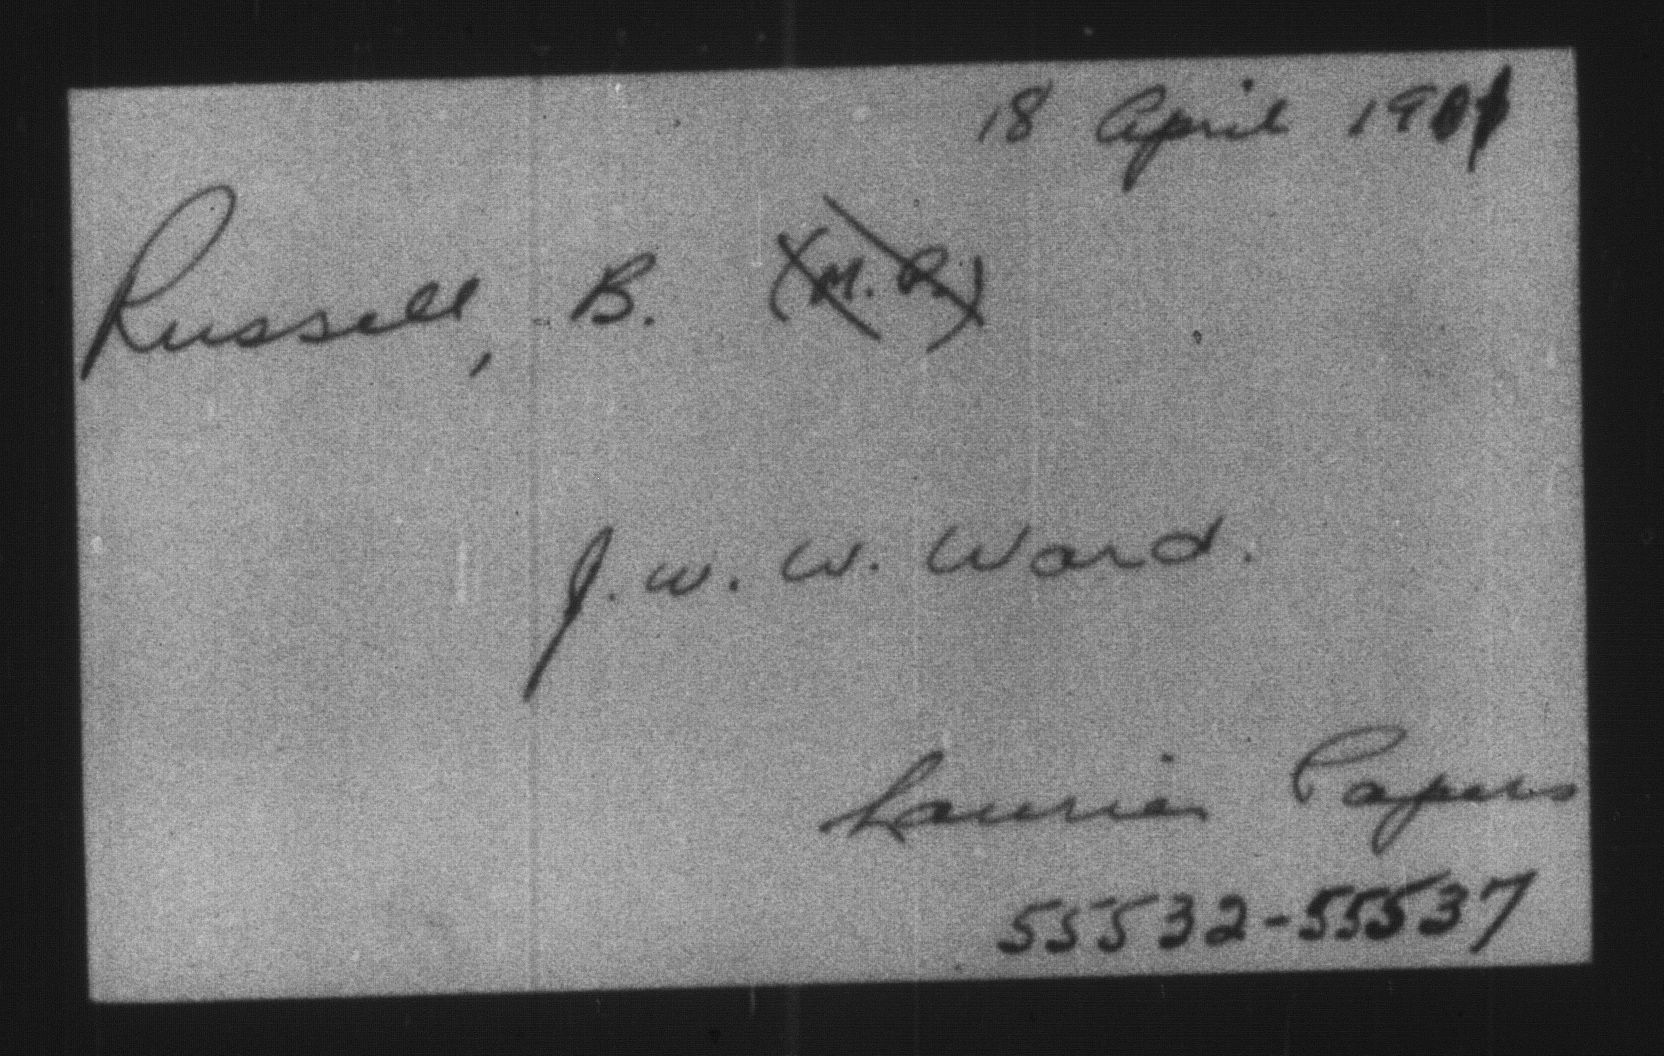 18 April 1901
Russell, B. (M.P.)
J. W. W. Ward.
Laurier Papers
55532-55537